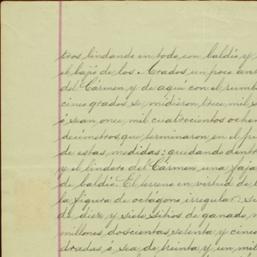 teos lindando en todo con baldío y
el bajo de los Arados un poco
del Cármen y de aquí con el rumbo
cinco grados, se midieron trece mil
ó sean once mil cuatrocientos ochen
decímetros que terminaron en el
de estas medidas: quedando dent
y el lindero del Cármen una faja
de baldío. El terreno en virtud de
la figura de octágono irregular: se
de diez y siete sitios de ganado
millones doscientas setenta y cinco
dradas, ó sea de treinta y un mil